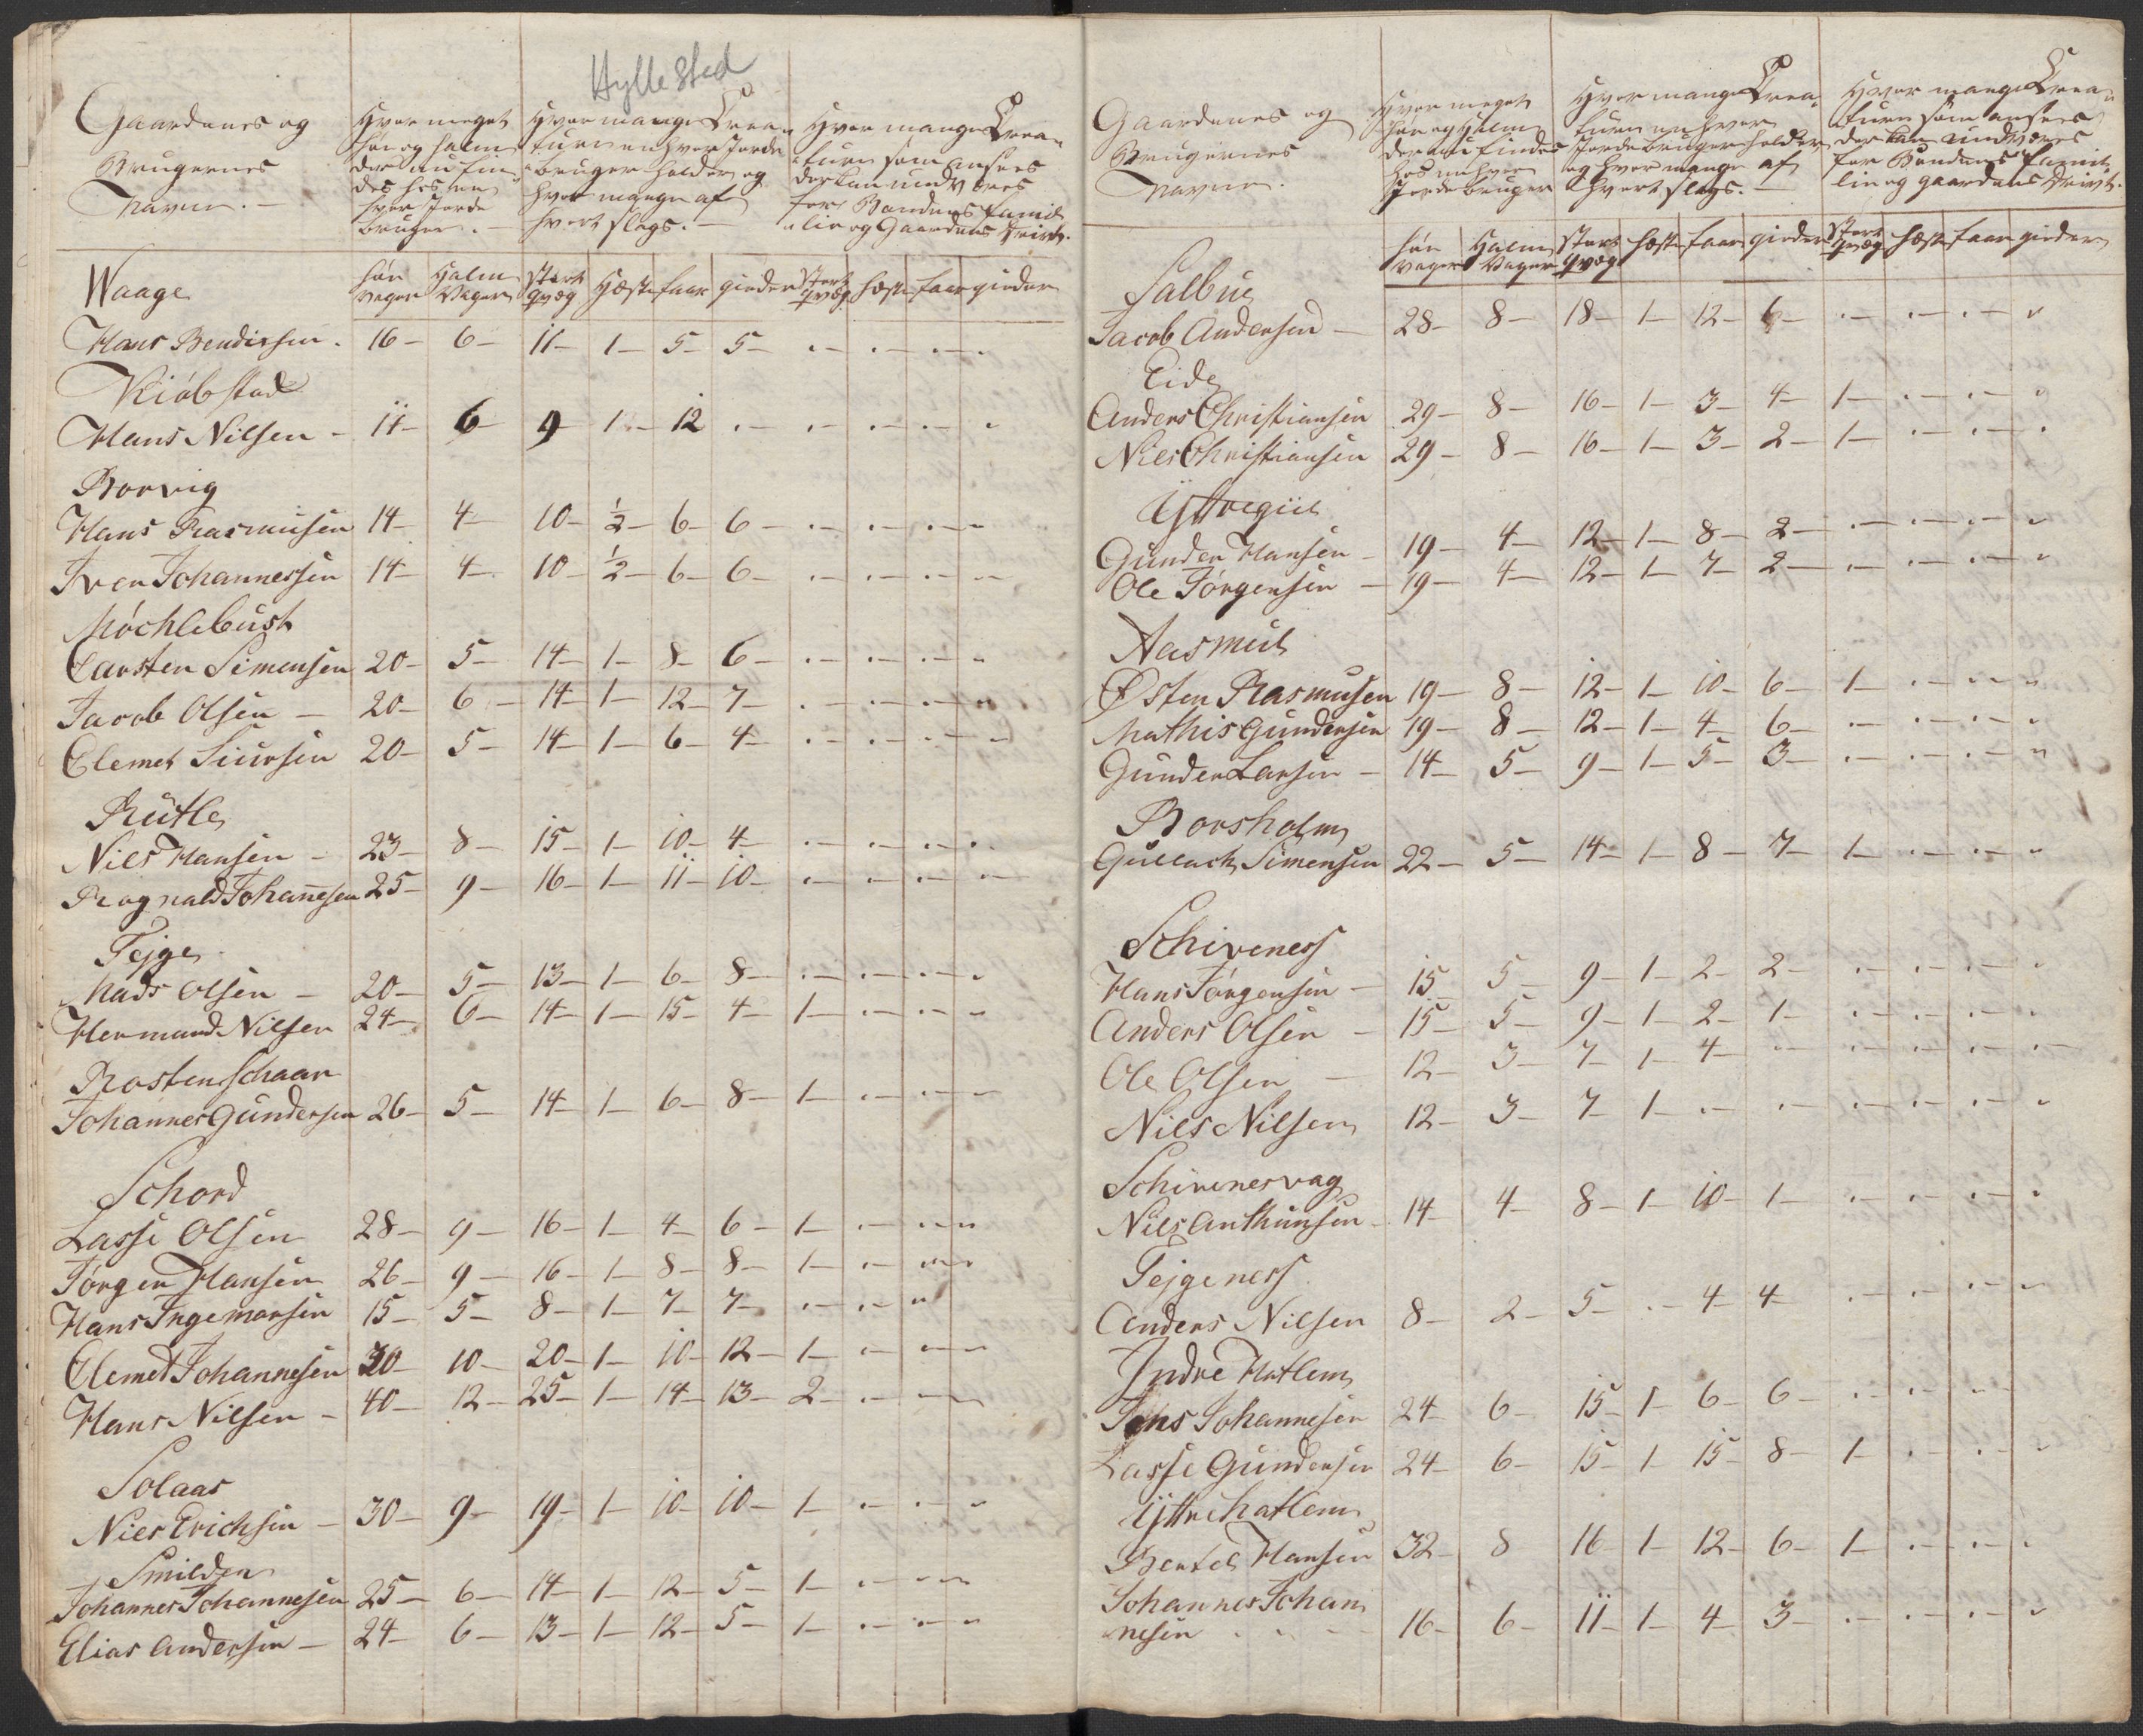 Hyllestad
Gaardenes og
Brugernes
Navne. —
Hvor meget
höe og halm
der nu fin
des hos en
hver Jorde
bruger. —
Hvor mange Krea-
turer en hver Jorde
bruger holder og
hvor mange af
hvert slags. —
Hvor mange Krea-
turer som ansees
der kan undværes
for Bondens Famil
lie og Gaardens Drivt.
Waage
höe Vager Halm Vager Stort Qvæg Hæste faar gieder Stort Qvæg hæste faar gieder
Hans Bendixsen . 16 — 6 — 11 — 1 — 5 — 5 — " — " — " — "
Kiöbstad
Hans Nilsen — 11 — 6 — 9 — 1 — 12 " — " — " — " — "
Borvig
Hans Rasmusen 14 — 4 — 10 — ½ — 6 — 6 — " — " — " — "
Iver Johannessen 14 — 4 — 10 — ½ — 6 — 6 — " — " — " — "
Möchlebust
Carsten Simensen 20 — 5 — 14 — 1 — 8 — 6 — " — " — " — "
Jacob Olsen — 20 — 6 — 14 — 1 — 12 — 7 — " — " — " — "
Clemet Siursen 20 — 5 — 14 — 1 — 6 — 4 — " — " — " — "
Rutle
Niels Hansen — 23 — 8 — 15 — 1 — 10 — 4 — " — " — " — "
Ragnald Johanesen 25 — 9 — 16 — 1 — 11 — 10 — " — " — " — "
Tejge
Mads Olsen — 20 — 5 — 13 — 1 — 6 — 8 — " — " — " — "
Hermand Nilsen 24 — 6 — 14 — 1 — 15 — 4 — 1 — " — " — "
Rostenschaar
Johannes Gundersen 26 — 5 — 14 — 1 — 6 — 8 — 1 — " — " — "
Schord
Lasse Olsen 28 — 9 — 16 — 1 — 4 — 6 — 1 — " — " — "
Jörgen Hansen 26 — 9 — 16 — 1 — 8 — 8 — 1 — " — " — "
Hans Ingemorsen 15 — 5 — 8 — 1 — 7 — 7 — " — " — "
Clemet Johannesen 30 — 10 — 20 — 1 — 10 — 12 — 1 — " — " — "
Hans Nilsen — 40 — 12 — 25 — 1 — 14 — 13 — 2 — " — " — "
Solaas
Niels Erichsen — 30 — 9 — 19 — 1 — 10 — 10 — 1 — " — " — "
Smilden
Johannes Johannesen 25 — 6 — 14 — 1 — 12 — 5 — 1 — " — " — "
Elias Andersen — 24 — 6 — 13 — 1 — 12 — 5 — 1 — " — " — "
Gaardenes og
Brugernes
Navne.
Hvor meget
höe og Halm
der nu findes
hos en hver
Jordebruger
Hvor mange Krea-
turer en hver
Jordebruger holder
og hvor mange af
hvert slags. —
Hvor mange Krea-
turer som ansees
der kan undværes
for Bondens Famil
lie og gaardens Drivt.
höe Vager Halm Vager Stort Qvæg hæste faar gieder Stort Qvæg hæste faar gieder
Salbue
Jacob Andersen — 28 — 8 — 18 — 1 — 12 — 6 — " — " — " — "
Eide
Anders Christiansen 29 — 8 — 16 — 1 — 3 — 4 — 1 — " — " — "
Niels Christiansen 29 — 8 — 16 — 1 — 3 — 2 — 1 — " — " — "
Yttregiil
Gunder Hansen — 19 — 4 — 12 — 1 — 8 — 2 — " — " — " — "
Ole Jörgensen — 19 — 4 — 12 — 1 — 7 — 2 — " — " — " — "
Aasmul
Østen Rasmusen 19 — 8 — 12 — 1 — 10 — 6 — 1 — " — " — "
Mathis Gundersen 19 — 8 — 12 — 1 — 4 — 6 — " — " — " — "
Gunder Larsen — 14 — 5 — 9 — 1 — 5 — 3 — " — " — " — "
Borsholm
Gullach Simensen 22 — 5 — 14 — 1 — 8 — 7 — 1 — " — " — "
Schiveness
Hans Jörgensen — 15 5 — 9 — 1 — 2 — 2 — " — " — " — "
Anders Olsen — 15 — 5 — 9 — 1 — 2 — 1 — " — " — " — "
Ole Olsen — 12 — 3 — 7 — 1 — 4 — " — " — " — " — "
Niels Nilsen 12 — 3 — 7 — 1 — " — " — " — " — " — "
Schivenesvag
Niels Anthunsen — 14 — 4 — 8 — 1 — 10 — 1 — " — " — " — "
Tejgeness
Anders Nilsen 8 — 2 — 5 — " — 4 — 4 " — " — " — "
Indre Hatlem
Jens Johannesen 24 — 6 — 15 — 1 — 6 — 6 — " — " — " — "
Lasse Gundersen 24 — 6 — 15 — 1 — 15 — 8 — 1 — " — " — "
Yttre hatlem
Bertel Hansen 32 — 8 16 — 1 — 12 — 6 — 1 — " — " — "
Johannes Johan
nesen " " — 16 — 6 — 11 — 1 — 4 — 3 — " — " — " — "